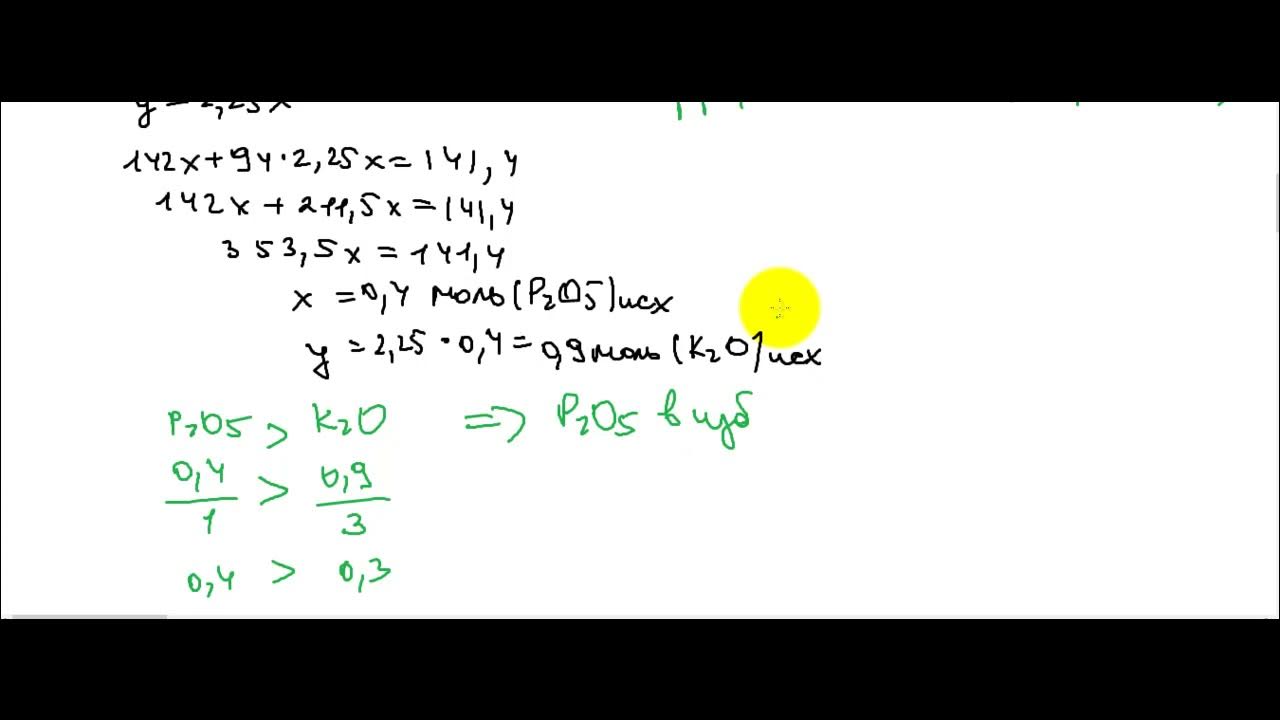 y = 2,25x
142x + 94·2,25x = 141,4
142x + 211,5x = 141,4
353,5x = 141,4
x = 0,4 моль (P₂O5) исх
y = 2,25 · 0,4 = 0,9 моль (K₂O) исх
P₂O5 > K₂O => P₂O5 в изб
0,4/1 > 0,9/3
0,4 > 0,3